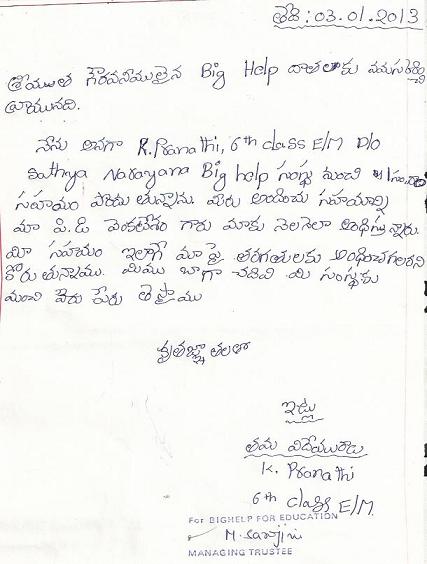 తేది : 03.01.2013
శ్రీయుత గౌరవనీయులైన Big Help దాతలకు నమస్కరించి
వ్రాయునది.
నేను అనగా K. Pranathi, 6th class E/M D/O
Sathya Narayana Big help సంస్థ నుంచి
సహాయం పొందు తున్నాను. మీరు అందించు సహాయాన్ని
మా పి.డి వెంకటేశం గారు మాకు నెలనెలా అందిస్తున్నారు.
మీ సహయం ఇలాగే మా పై తరగతులకు అందించగలరని
కోరు తున్నాము. మేము బాగా చదివి మీ సంస్థకు
మంచి పేరు తెస్తాము
కృతజ్ఞతలతో
ఇట్లు
తమ విదేయురాలు
K. Pranathi
6th class E/M.
For BIGHELP FOR EDUCATION
M. Sarojini
MANAGING TRUSTEE